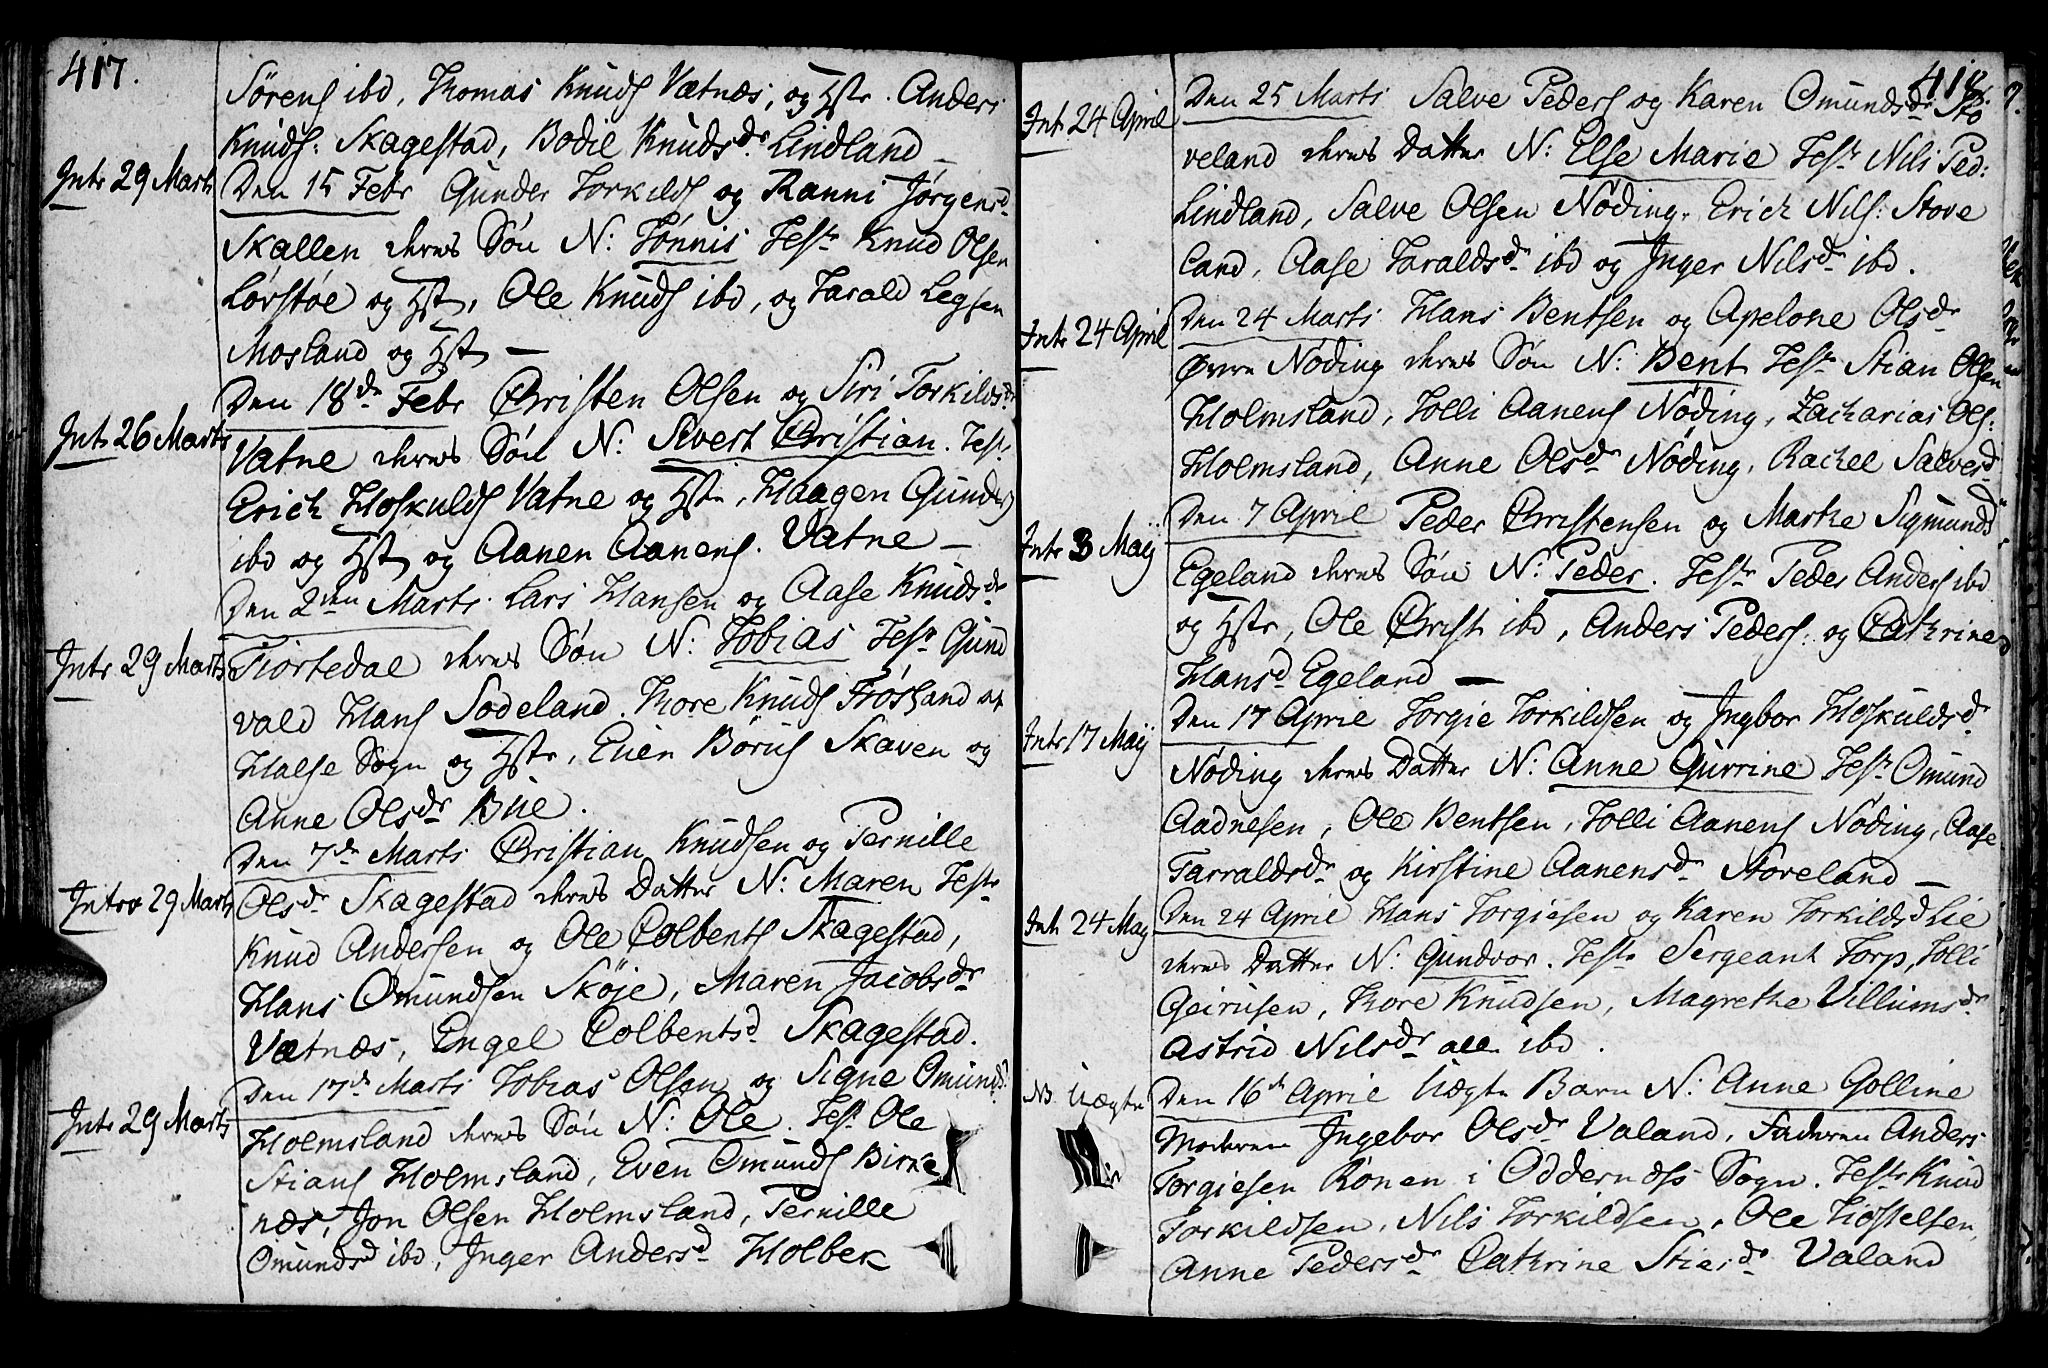 417.
Sørens ibd, Thomas Knuds Vætnæs, og Hstr. Anders
Knuds: Skagestad, Bodil Knudsdr Lindland
Intr 29 Marts
Den 15 Febr Gunder Torkilds og Ranni Jørgensd
Skallen deres Søn N: Tønnis Testr Knud Olsen
Lørstøe og Hstr, Ole Knuds ibd, og Tarald Legsen
Mosland og Hstr
Intr 26 Marts
Den 18de Febr Christen Olsen og Siri Torkildsdr
Vatne deres Søn N: Sivert Christian. Test
Erich Hoskulds Vatne og Hstr, Haagen Gunders
ibd og Hstr og Aanen Aanens. Vatne
Intr 29 Marts
Den 2den Marts. Lars Hansen og Aase Knudsdr
Fiortedal deres Søn N: Tobias Testr Gund
vald Hans Sodeland. Thore Knuds Frøsland at
Halse Sogn og Hstr, Even Børus Skaven og
Anne Olsdr Bue.
Intro 29 Marts
Den 7de Marts Christian Knudsen og Pernille
Olsdr Skagestad deres Datter N: Maren Testr
Knud Andersen og Ole Colbents Skagestad,
Hans Omundsen Skøje, Maren Jacobsdr
Vætnæs, Engel Colbentsd Skagestad.
Intr 29 Marts
Den 17de Marts Tobias Olsen og Signe Omunds:
Holmsland deres Søn N: Ole. Testr Ole
Stians Holmsland, Even Omunds Birke
næs, Jon Olsen Holmsland, Pernille
Omundsd ibd, Inger Andersd Holbek
418
Intr 24 April
Den 25 Marts Salve Peders og Karen Omundsdr Sto
veland deres Datter N: Else Marie Testr Nils Ped:
Lindland, Salve Olsen Nøding. Erich Nils: Stove
land, Aase Taraldsdr ibd og Inger Nilsdr ibd.
Intr 24 April
Den 24 Marts Hans Bentsen og Apelone Olsdr
Øvre Nøding deres Søn N: Bent Testr Stian Olsen
Holmsland, Tolli Aanens Nøding, Zacharias Ols:
Holmsland, Anne Olsdr Nøding, Rachel Salvesd
Intr 3 Maij
Den 7 April Peder Christensen og Marthe Sigmunds
Egeland deres Søn N: Peder. Testr Peder Anders ibd
og Hstr, Ole Christ ibd, Anders Peders: og Cathrine
Hansd Egeland
Intr 17 Maij
Den 17 April Torgie Torkildsen og Ingbor Hoskuldsdr
Nøding deres Datter N: Anne Gurrine Testr Omund
Aadnesen, Ole Bentsen, Tolli Aanens Nøding, Aase
Tarraldsdr og Kirstine Aanensdr Stoveland
Int 24 May
Den 24 April Hans Torgiesen og Karen Torkildsd Lie
deres Datter N: Gundvor. Testr Sergeant Torp, Tolli
Geirusen, Thore Knudsen, Magrethe Villumsdr
Astrid Nilsdr alle ibd.
NB Uægte
Den 16de April Uægte Barn N: Anne Golline
Moderen Ingebor Olsdr Valand, Faderen Anders
Torgiesen Rønen i Oddernæss Sogn. Testr Knud
Torkildsen, Nils Torkildsen, Ole Tiostelsen,
Anne Pedersdr Cathrine Stiesdr Valand